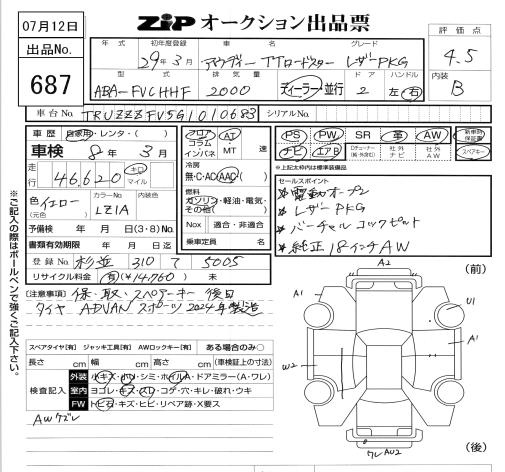 07月12日
出品No.
687
ZIPオークション出品票
評価点
4.5
内装
B
年式
初年度登録
29年3月
車名
アウディー TTロードスター
グレード
レザーPKG
型式
ABA-FVCHHF
排気量
2000
ディーラー・並行
ドア
2
ハンドル
左・右
車台No.
TRUZZZFV5G1010683
シリアルNo.
車歴 自家用・レンタ・( )
車検 8年3月
走行 46,620 キロ マイル
色 イエロー (元色)
カラーNo.
LZ1A
内装色
予備検 年 月 日(3・8) No.
書類有効期限 年 月 日迄
登録No. 杉並 310 て 5005
リサイクル料金 有(¥14,760) 未
シフト
フロア
コラム
インパネ
AT
MT
速
冷房
無・C・AC・AAC
燃料
ガソリン・軽油・電気・その他( )
Nox 適合・非適合
乗車定員 名
PS PW SR 革 AW 新車時保証書
ナビ エアB 社外ナビ 社外AW スペアキー
※上記太枠内は標準装備品
セールスポイント
*電動オープン
*レザーPKG
*バーチャルコックピット
*純正18インチAW
[注意事項] 保・取・スペアキー 後日
タイヤ ADVAN スポーツ 2024年製造
スペアタイヤ[有] ジャッキ工具[有] AWロックキー[有] ある場合のみ○
長さ cm 幅 cm 高さ cm (車検証上の寸法)
検査記入
外装 小キズ・小凹・シミ・ホイルA・ドアミラー(A・ワレ)
室内 ヨゴレ・キズ・スレ・コゲ・穴・キレ・破れ・ウキ
FW トビ石・キズ・ヒビ・リペア跡・X要ス
AWズレ
※ご記入の際はボールペンで強くご記入下さい。
(前)
A2
A1
U1
A1
W2
ワレ AU2
(後)